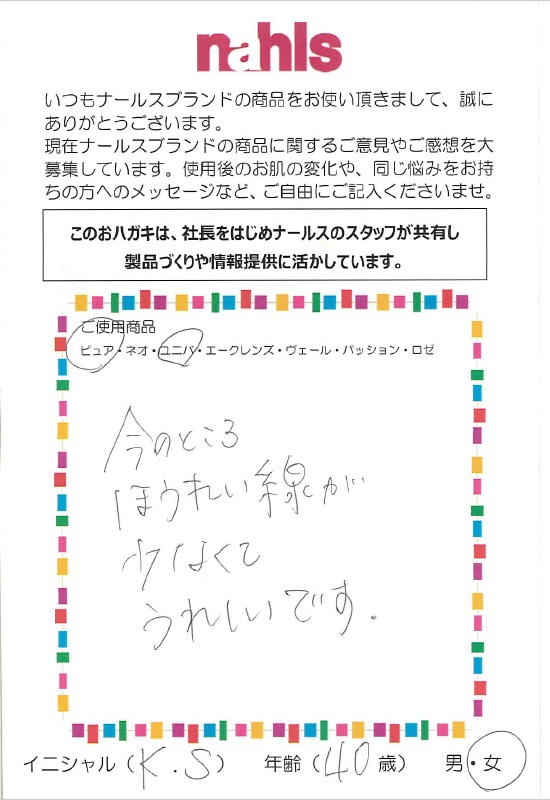 nahls
いつもナールスブランドの商品をお使い頂きまして、誠に
ありがとうございます。
現在ナールスブランドの商品に関するご意見やご感想を大
募集しています。使用後のお肌の変化や、同じ悩みをお持
ちの方へのメッセージなど、ご自由にご記入くださいませ。
このおハガキは、社長をはじめナールスのスタッフが共有し
製品づくりや情報提供に活かしています。
ご使用商品
ピュア・ネオ・ユニバ・エークレンズ・ヴェール・パッション・ロゼ
今のところ
ほうれい線が
少なくて
うれしいです.
イニシャル(K.S) 年齢(40歳) 男・女